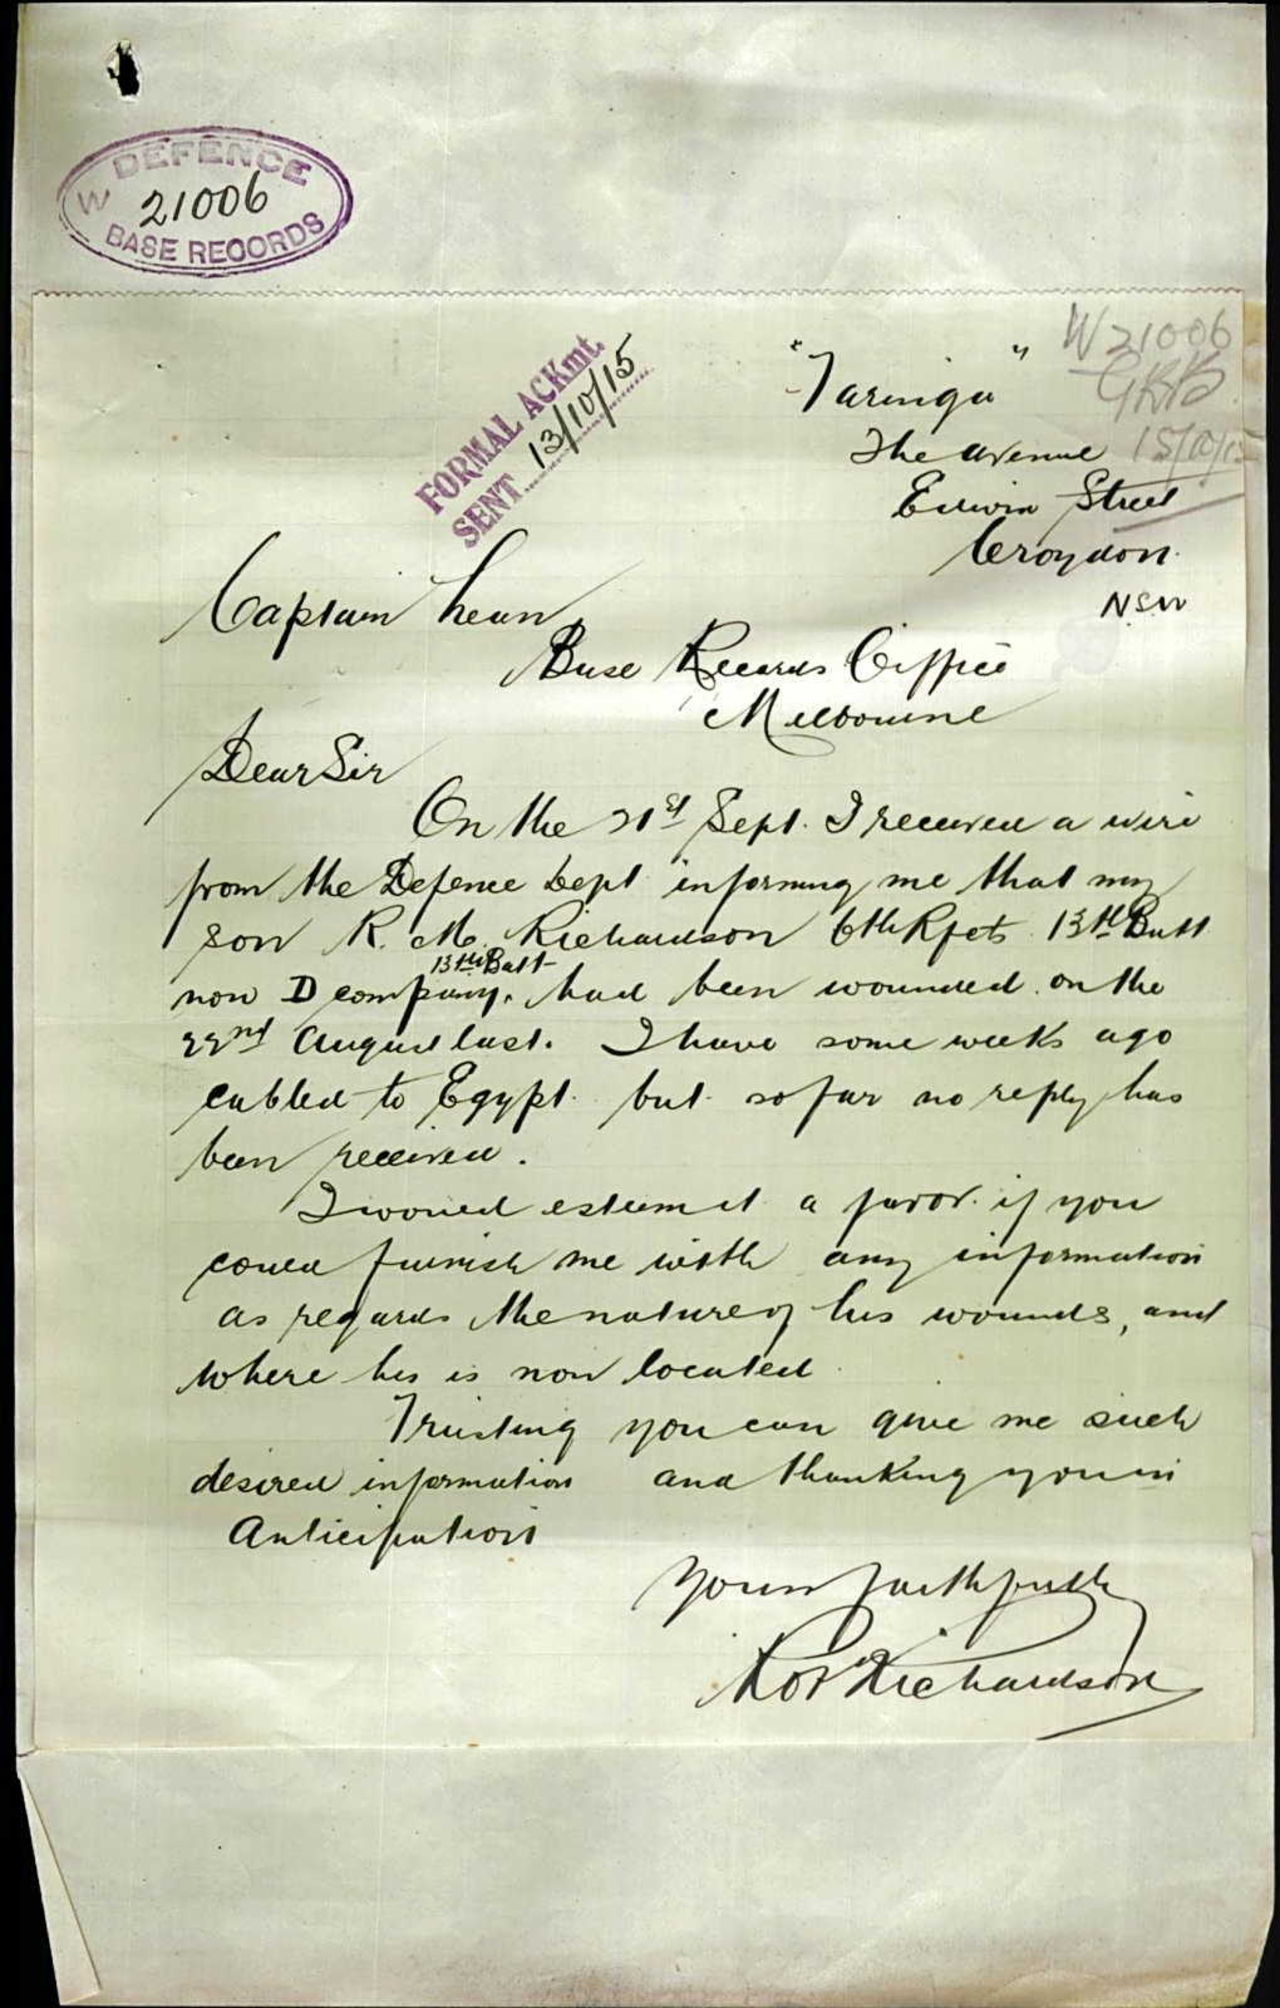 W DEFENCE
21006
BASE RECORDS
W 21006
15/10/15
FORMAL ACKmt.
SENT 13/10/15
"Taringa"
The Avenue
Edwin Street
Croydon.
NSW
Captain Lean
Base Records Office
Melbourne
Dear Sir
On the 21st Sept. I received a wire
from the Defence Dept informing me that my
son R. M. Richardson 6th Rfcts 13th Batt
13th Batt
now D company. had been wounded on the
22nd August last. I have some weeks ago
cabled to Egypt but so far no reply has
been received.
I would esteem it a favor if you
could furnish me with any information
as regards the nature of his wounds, and
where his is now located
Trusting you can give me such
desired information and thanking you in
Anticipation
Yours faithfully
Robt Richardson